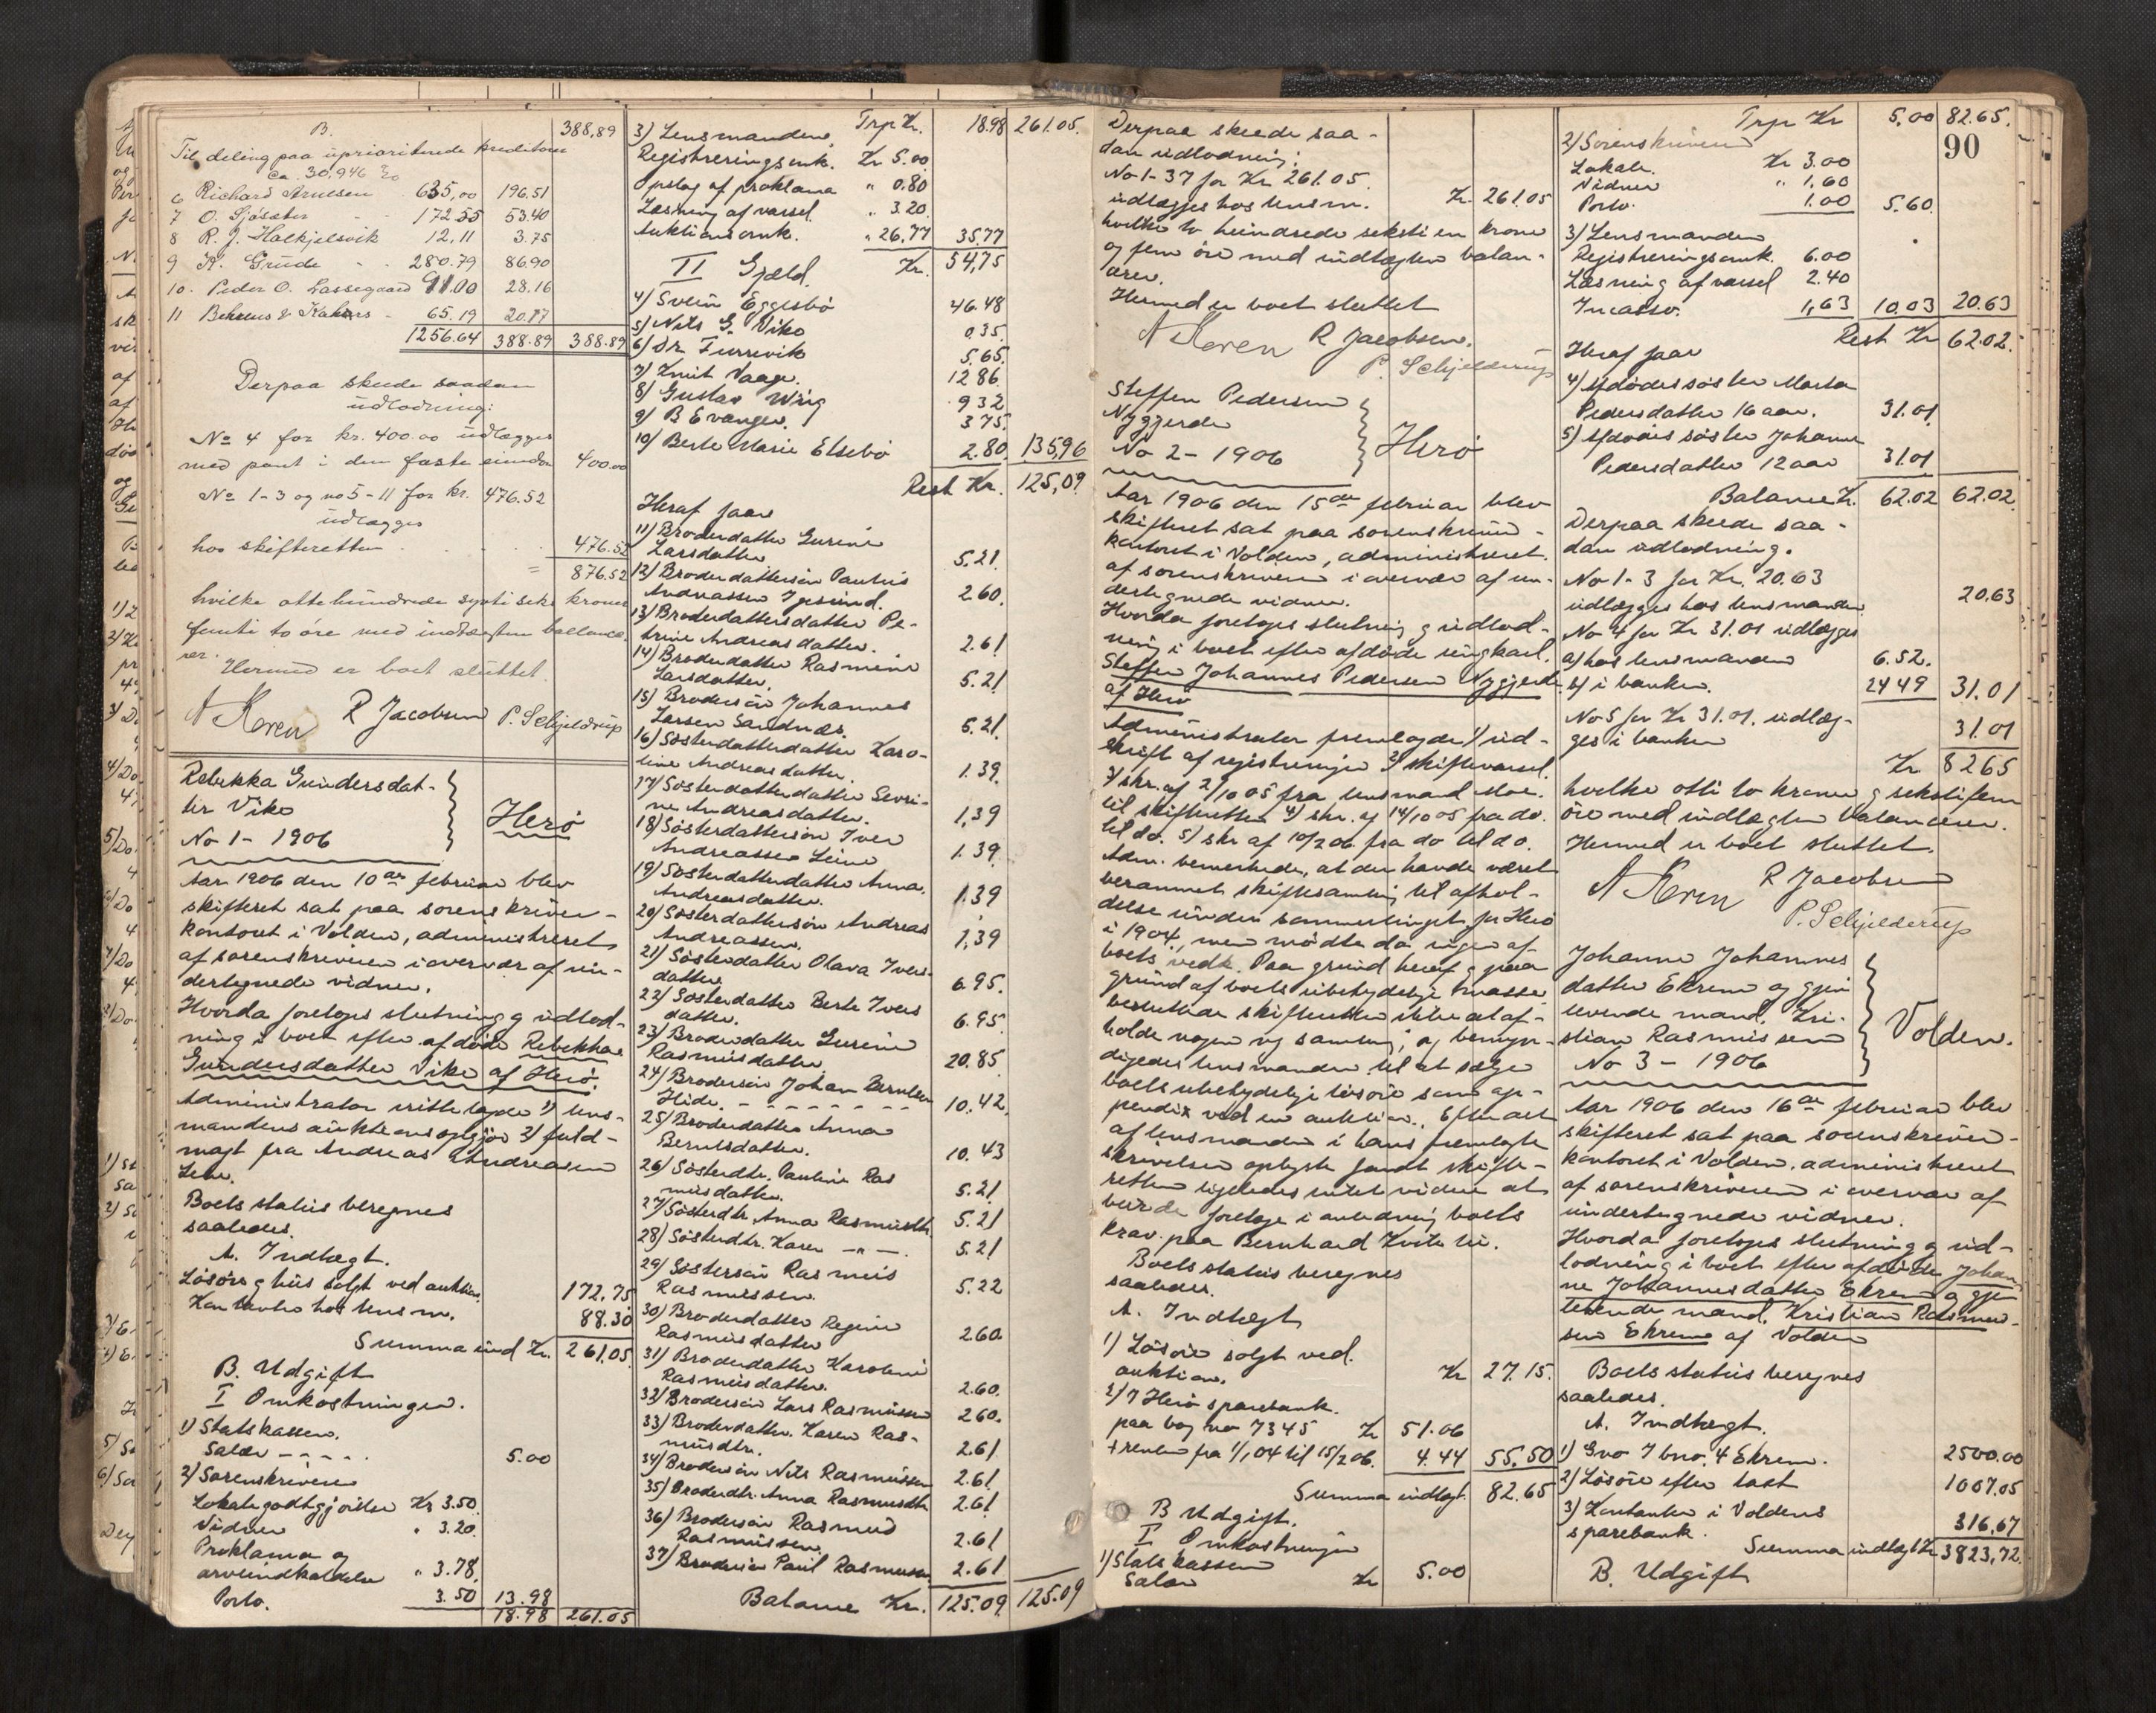 B. 388,89
Til deling paa uprioriterede kreditorer
ca. 30,946 %
6 Richard Arnesen 635,00 196.51
7 O. Sjøsæter 172.55 53.40
8 R. J. Halkjelsvik 12,11 3.75
9 K. Grude 280.79 86.90
10. Peder O. Lassegaard 91.00 28.16
11 Behrens & 65.19 20.17
1256.64 388.89 388.89
Derpaa skeede saadan
udlodning:
No 4 for kr. 400.00 udlægges
med pant i den faste eiendom 400.00
No 1-3 og no 5-11 for kr. 476.52
udlægges
hos skifteretten 476.52
= 876.52
hvilke ottehundrede sytti seks kroner
femti to øre med indtægten ballance-
rer.
Hermed er boet sluttet.
A Koren R Jacobsen P. Schjelderup
Rebekka Gundersdat-
ter Vike
No 1- 1906
Herø
Aar 1906 den 10de februar blev
skifteret sat paa sorenskriver-
kontoret i Volden, administreret
af sorenskriveren i overvær af un-
dertegnede vidner.
Hvorda foretoges slutning og udlod-
ning i boet efter afdøde Rebekka
Gundersdatter Vike af Herø.
Administrator irettelagde 1) lens-
mandens auktionsopgjør 2) fuld-
magt fra Andreas Andreasen
Leine.
Boets status beregnes
saaledes.
A. Indtægt.
Løsøre og hus solgt ved auktion 172,75
Kontanter hos lensm. 88.30
Summa ind Kr. 261.05
B. Udgift
I Omkostninger.
1) Statskassen.
Salær - - - - 5.00
2) Sorenskriveren
Lokalegodtgjørelse Kr 3.50
Vidner " 3.20.
Proklama og
arveindkaldelse " 3.78.
Porto. 3.50 13.98
18.98 261.05
Trp Kr. 18.98 261.05.
3) Lensmanden
Registreringsomk. Kr 5.00
Opslag af proklama " 0.80
Læsning af varsel. " 3.20.
Auktionsomk. " 26,77 35,77
Kr. 54,75
II Gjæld.
4) Svein Eggesbø 46.48
5) Nils G. Vike 0.35.
6) Dr Furrevik 5.65.
7) Knut Vaage. 12 86.
8) Gustav Wiig 9 32
9) B Evanger. 3 75.
10) Berte Marie Elsebø 2.80 135,96
Rest Kr. 125,09.
Heraf faar
11) Broderdatter Gurine
Larsdatter 5.21.
12) Broderdattersøn Paulus
Andreassen Igesund. 2 60.
13) Broderdattersdatter Pe-
trine Andreasdatter. 2.61
14) Broderdatter Rasmine
Larsdatter. 5.21
15) Brodersøn Johannes
Larsen Sandnæs. 5.21.
16) Søsterdatterdatter Karo-
line Andreasdatter. 1.39
17) Søsterdatterdatter Sevri-
ne Andreasdatter. 1,39
18) Søsterdattersøn Iver
Andreassen Leine 1.39
19) Søsterdatterdatter Anna
Andreasdatter. 1.39
20) Søsterdattersøn Andreas
Andreassen. 1,39
21) Søsterdatter Olava Ivers-
datter 6.95.
22) Søsterdatter Berte Ivers
datter. 6.95.
23) Broderdatter Gurine
Rasmusdatter 20.85
24) Brodersøn Johan Berntsen
Hide. - - - - - - - - 10.42.
25) Broderdatter Anna
Berntsdatter. 10.43
26) Søsterdtr. Pauline Ras
musdatter. 5.21
27) Søsterdtr. Anna Rasmusdtr. 5.21
28) Søsterdtr. Karen -"-. 5.21
29) Søstersøn Rasmus
Rasmussen. 5.22
30) Broderdatter Regine
Rasmusdatter 2.60.
31) Broderdatter Karoline
Rasmusdatter. 2.60.
32) Brodersøn Lars Rasmussen 2.60.
33) Broderdatter. Karen Ras-
musdtr. 2.61
34) Brodersøn Nils Rasmussen 2.61
35) Broderdtr. Anna Rasmusdtr 2.61
36) Brodersøn Rasmus
Rasmussen. 2.61
37) Brodersøn Paul Rasmussen 2.61
Balance Kr. 125.09 125.09
Derpaa skeede saa-
dan udlodning:
No 1-37 for Kr. 261.05.
udlægges hos lensm. Kr. 261.05
hvilke to hundrede seksti en krone
og fem øre med indtægten balan-
cerer.
Hermed er boet sluttet
A Koren R Jacobsen.
P. Schjelderup
Steffen Pedersen
Nyggjerde
No 2- 1906
Herø
Aar 1906 den 15de februar blev
skifteret sat paa sorenskriver-
kontoret i Volden, administreret
af sorenskriveren i overvær af un-
dertegnede vidner.
Hvorda foretoges slutning og udlod-
ning i boet efter afdøde ungkarl.
Steffen Johannes Pedersen Nyggjerde
af Herø
Administrator fremlagde 1) ud-
skrift af registreringen 2) skiftevarsel.
3) skr. af 2/10 05 fra lensmand
til skifteretten 4) skr. af 14/10 05 fra do.
til do. 5) skr af 10/2 06. fra do til do.
Adm. bemerkede, at der havde været
berammet skiftesamling til afhol-
delse under sommertinget for Herø
i 1904, men mødte da ingen af
boets vedk. Paa grund heraf og paa
grund af boets ubetydelige masse
besluttede skifteretten ikke at af-
holde nogen ny samling; og bemyn-
digedes lensmanden til at sælge
boets ubetydelige løsøre som ap-
pendix ved en auktion. Efter det
af lensmanden i hans fremlagte
skrivelser oplyste fandt skifte-
retten ligeledes intet videre at
burde foretage i anledning boets
krav paa Bernhard
Boets status beregnes
saaledes.
A. Indtægt
1) Løsøre solgt ved.
auktion. Kr 27.15.
2) I Herø sparebank.
paa bog no 7345 Kr 51.06
+ renter fra 1/1 04 til 15/2 06. 4.44 55.50
Summa indtægt. 82.65
B Udgift.
I Omkostninger
1) Statskassen
Salær Kr 5.00
90
Trp Kr 5,00 82.65.
2) Sorenskriveren
Lokale. Kr 3.00
Vidner " 1,60
Porto. 1.00 5.60.
3) Lensmanden
Registreringsomk. 6.00
Læsning af varsel 2.40
Incasso. 1,63 10.03 20.63
Rest Kr 62.02.
Heraf faar
4) Afdødes søster Marta
Pedersdatter 16 aar. 31.01
5) Afdødes søster Johanne
Pedersdatter 12 aar 31.01
Balance Kr. 62.02 62.02
Derpaa skeede saa-
dan udlodning.
No 1-3 for Kr. 20.63
udlægges hos lensmanden 20.63
No 4 for Kr 31.01 udlægges
a) hos lensmanden 6.52.
b) i banken. 24 49 31.01
No 5 for Kr 31.01. udlæg-
ges i banken 31.01
Kr 82 65
hvilke otti to kroner og sekstifem
øre med indtægten balancerer.
Hermed er boet sluttet.
A Koren R Jacobsen
P. Schjelderup
Johanne Johannes
datter Ekrem og gjen
levende mand, Kri-
stian Rasmussen
No 3 - 1906
Volden.
Aar 1906 den 16de februar blev
skifteret sat paa sorenskriver-
kontoret i Volden, administreret
af sorenskriveren i overvær af
undertegnede vidner.
Hvorda foretoges slutning og ud-
lodning i boet efter afdøde Johan
ne Johannesdatter Ekrem og gjen
levende mand, Kristian Rasmus-
sen Ekrem af Volden
Boets status beregnes
saaledes.
A. Indtægt.
1) Gno 7 bno. 4 Ekrem. 2500.00
2) Løsøre efter takst 1007.05
3) Kontanter i Voldens
sparebank. 316,67
Summa indtægt Kr 3823,72.
B. Udgift